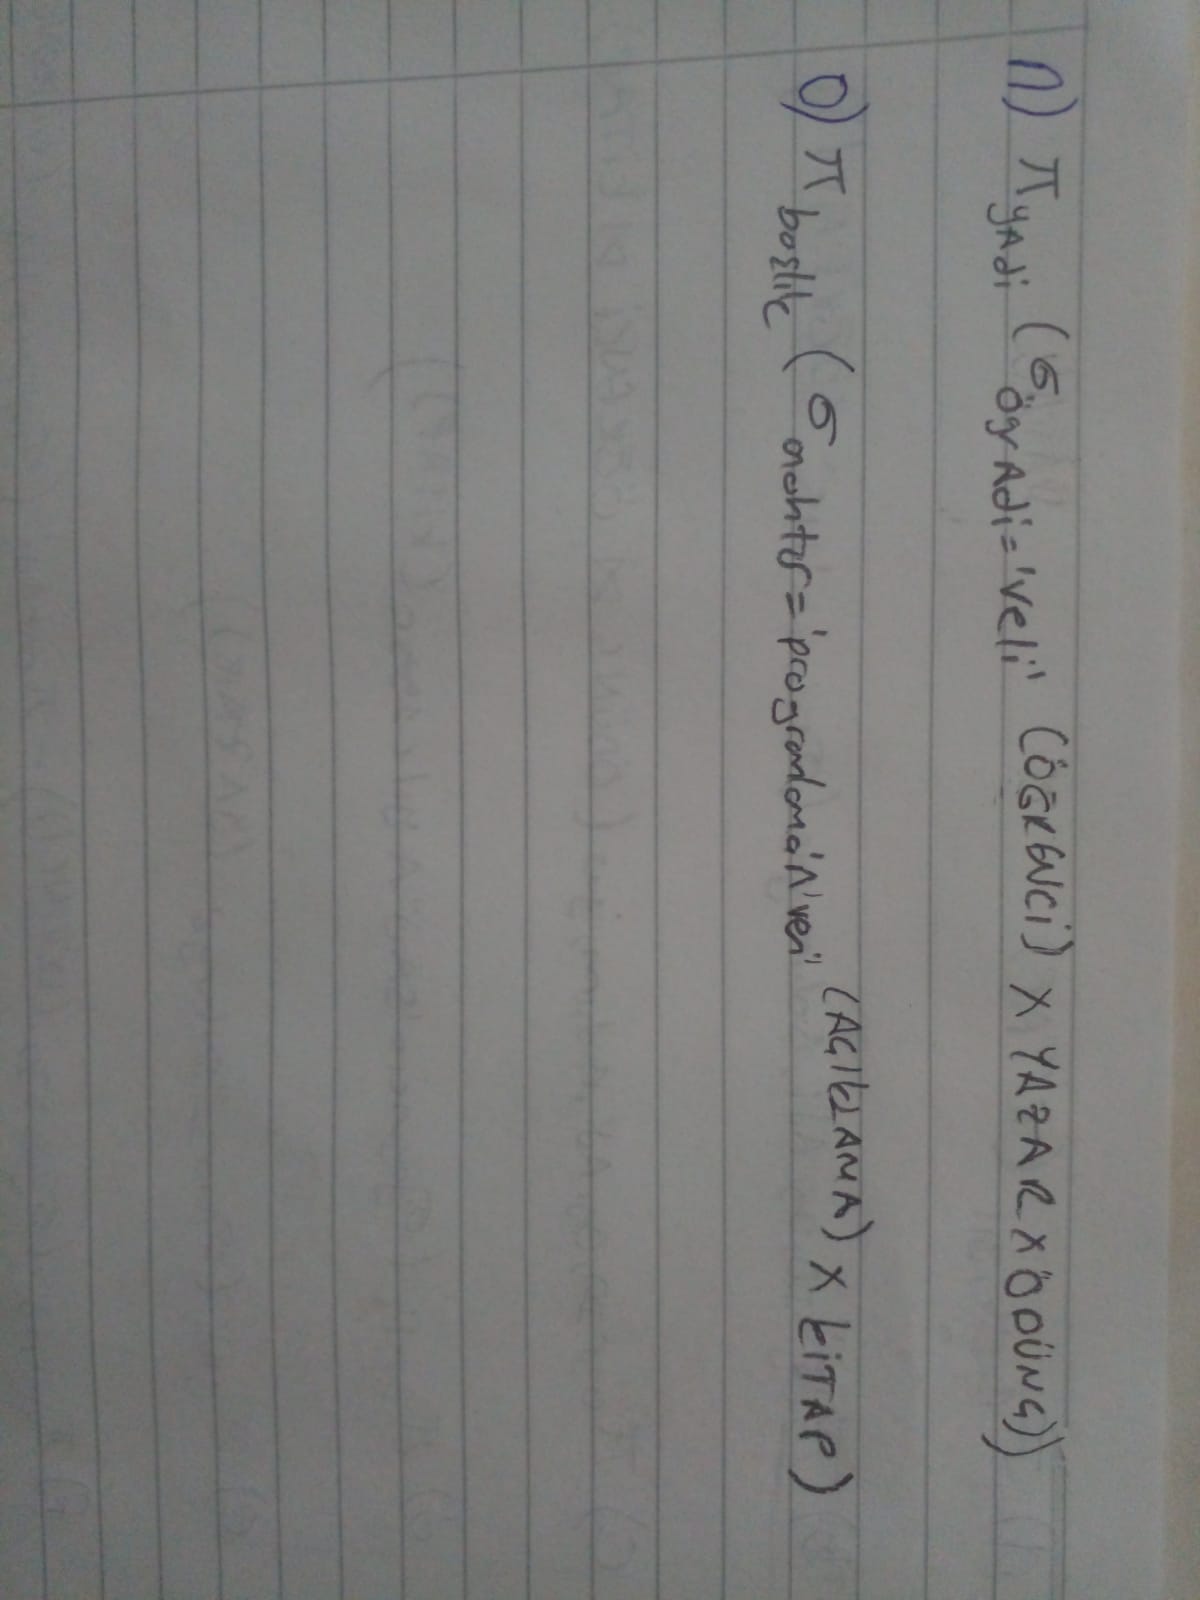 n) π yAdi ( σ ögrAdi='veli' (ÖĞRENCİ) X YAZAR X ÖDÜNÇ))
o) π başlık ( σ anahtar='programlama'Λ'veri' (AÇIKLAMA) X KİTAP)